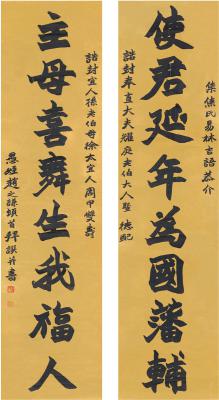 集焦氏易林吉語恭介
使君延年為國藩輔
誥封奉直大夫耀庭老伯大人暨 德配
誥封宜人孫老伯母徐太宜人周甲雙壽
主母喜舞生我福人
愚姪趙之謙頓首拜譔并書